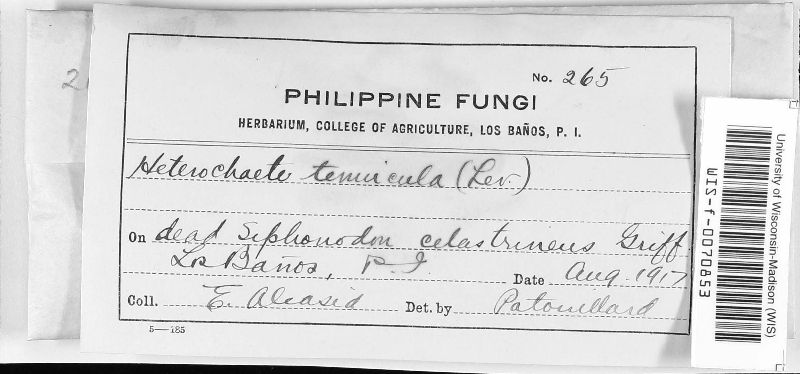 No. 265
PHILIPPINE FUNGI
HERBARIUM, COLLEGE OF AGRICULTURE, LOS BAÑOS, P. I.
Heterochaete tenuicula (Lev.)
On dead Siphonodon celastrineus Griff
Los Baños, P I Date Aug 1917
Coll. E. Aleasid Det. by Patouillard
5—185
University of Wisconsin-Madison (WIS)
WIS-f-0070853